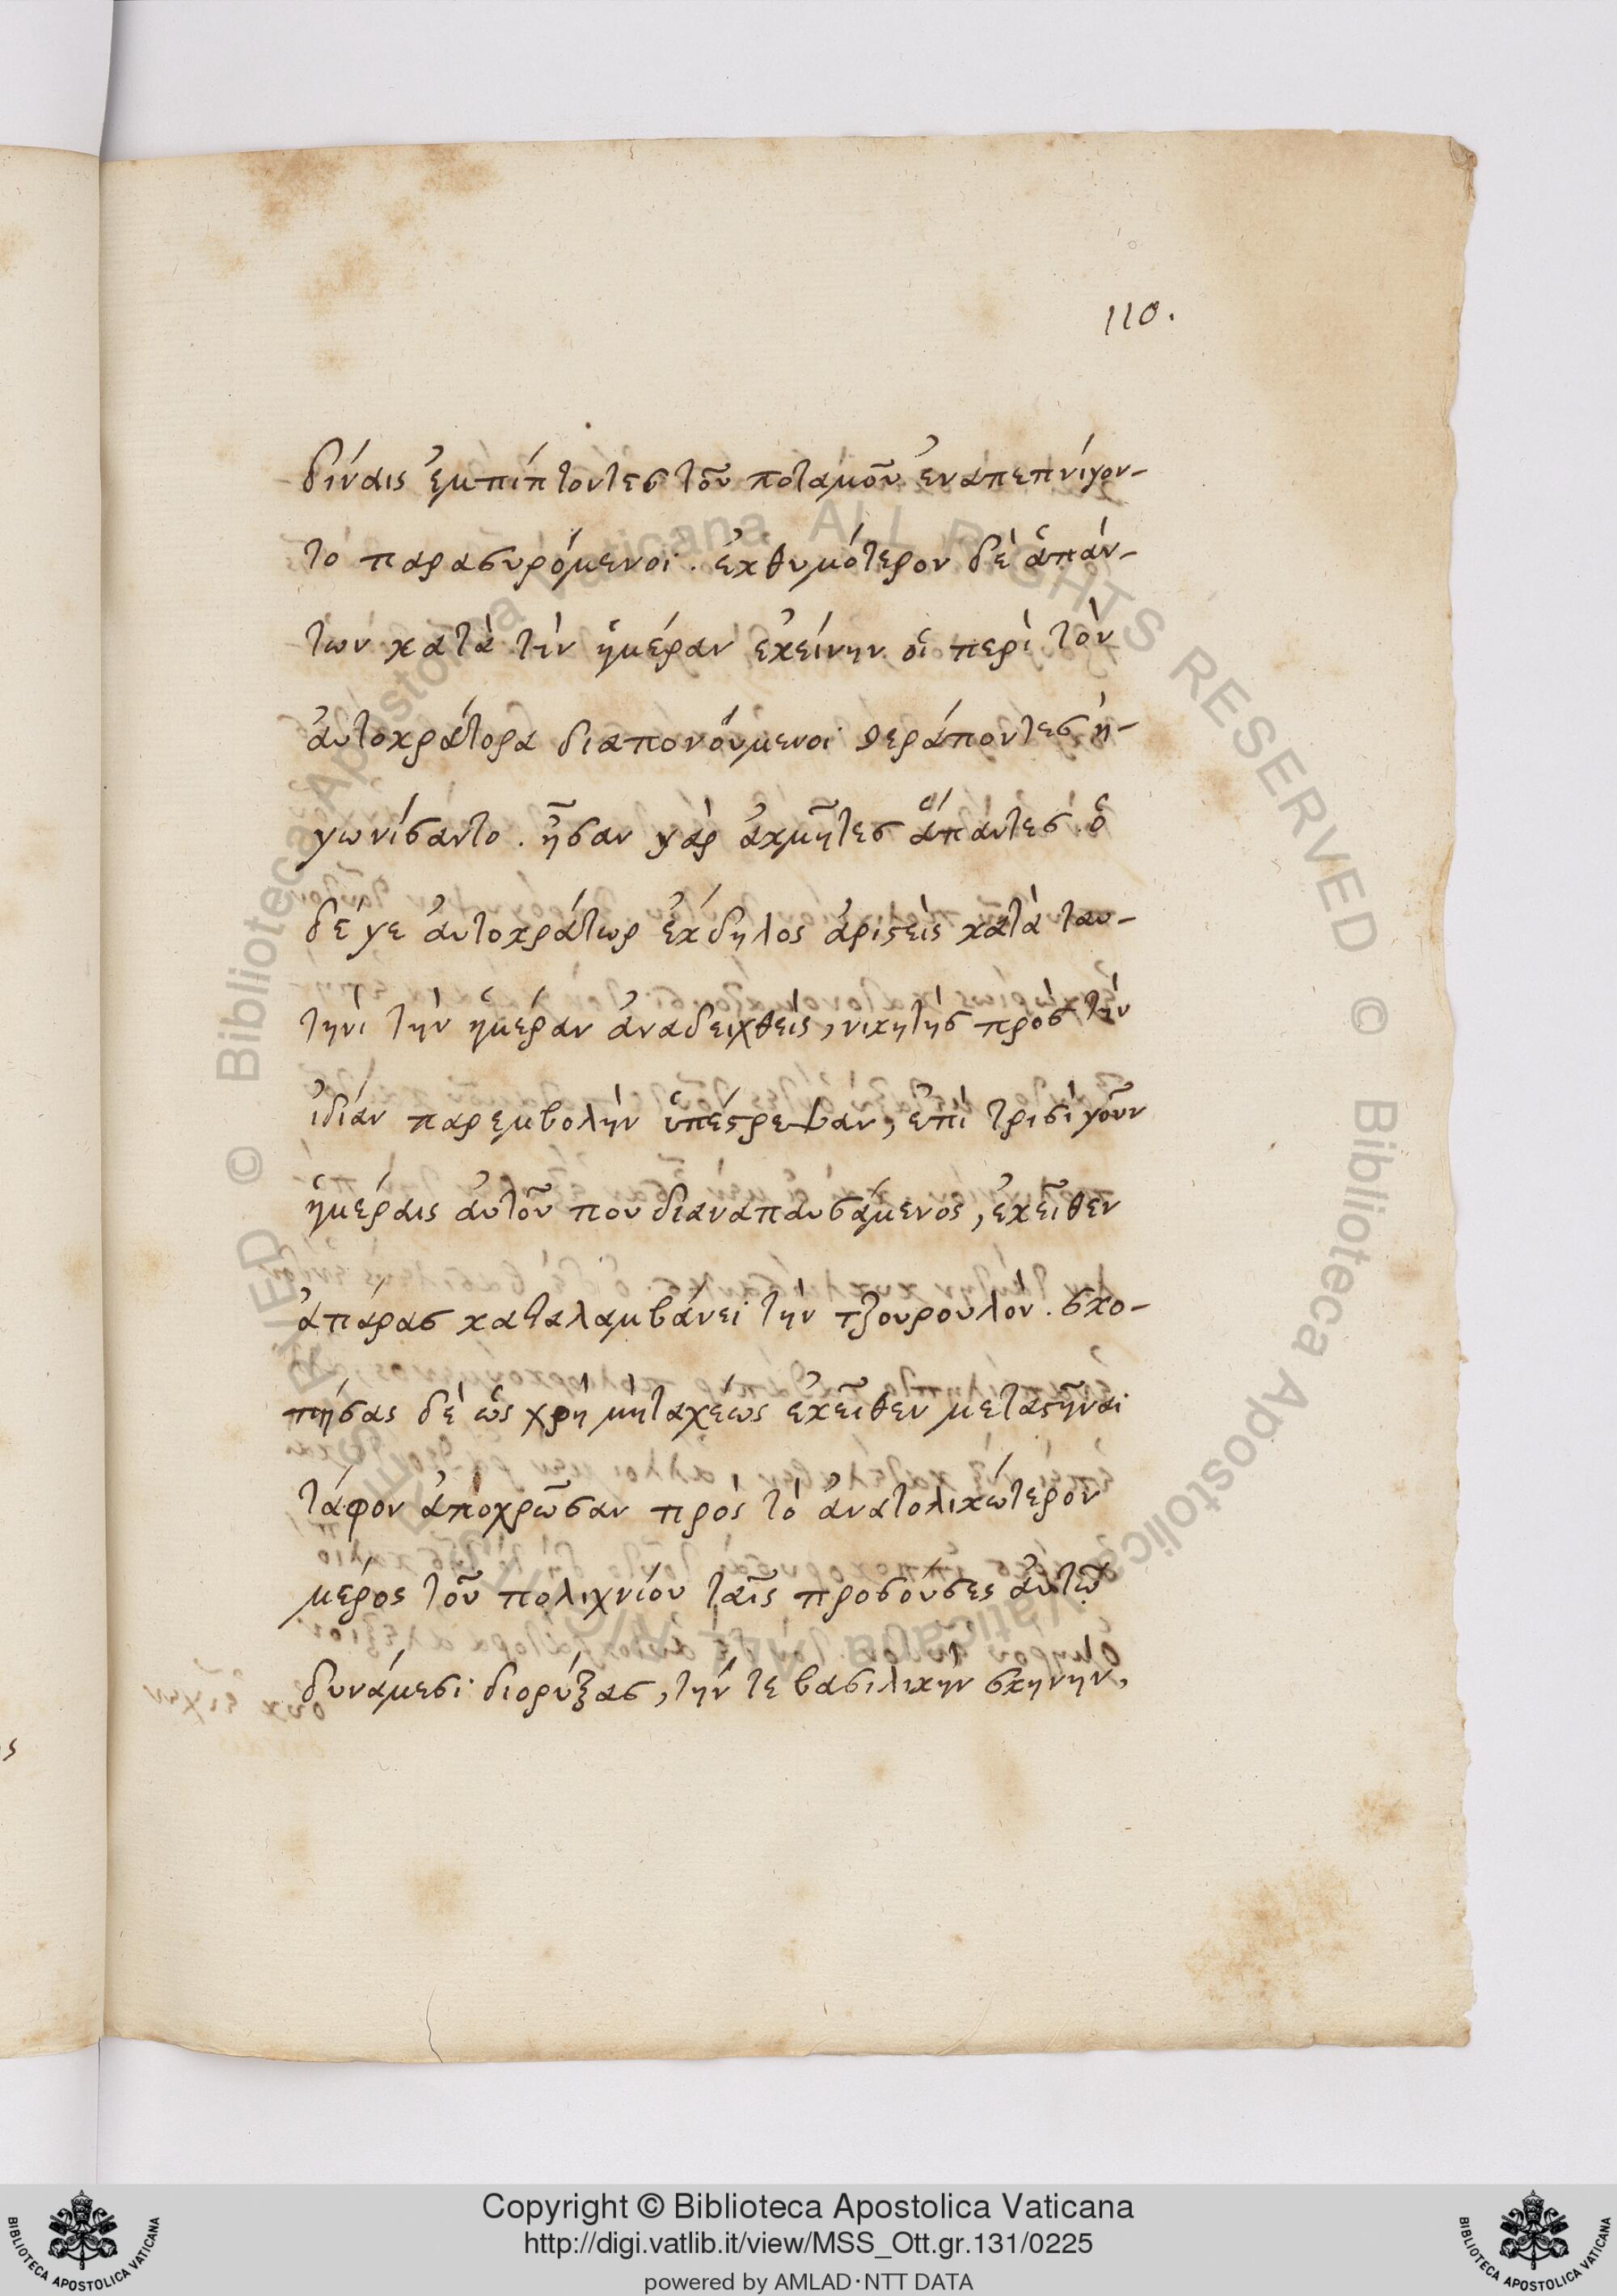 110.
δίναις ἐμπίπτοντες τοῦ ποταμοῦ ἐναπεπνίγον-
το παρασυρόμενοι. ἐκθυμότερον δὲ ἁπάν-
των κατὰ τὴν ἡμέραν ἐκείνην οἱ περὶ τὸν
ἀυτοκράτορα διαπονούμενοι θεράποντες ἠ-
γωνίσαντο. ἦσαν γὰρ ἀκμῆτες ἅπαντες. ὁ
δέ γε ἀυτοκράτωρ ἐκδηλος ἀριστεὶς κατὰ ταυ-
τηνὶ τὴν ἡμέραν ἀναδειχθεὶς, νικητὴς πρὸς τὴν
ἰδίαν παρεμβολὴν ὑπέστρεψαν, ἐπὶ τρισὶ γοῦν
ἡμέραις ἀυτοῦ που διαναπαυσάμενος, ἐκεῖθεν
ἀπάρας καταλαμβάνει τὴν τζουρουλον. σκο-
πήσας δὲ ὡς χρὴ μὴ ταχέως ἐκεῖθεν μεταστῆναι
τάφον ἀποχρῶσαν πρὸς τὸ ἀνατολικώτερον
μέρος τοῦ πολιχνίου ταῖς προσούσες ἀυτῷ
δυνάμεσι διορύξας, τήν τε βασιλικὴν σκηνην,
Copyright © Biblioteca Apostolica Vaticana
http://digi.vatlib.it/view/MSS_Ott.gr.131/0225
powered by AMLAD·NTT DATA
BIBLIOTECA APOSTOLICA VATICANA
BIBLIOTECA APOSTOLICA VATICANA